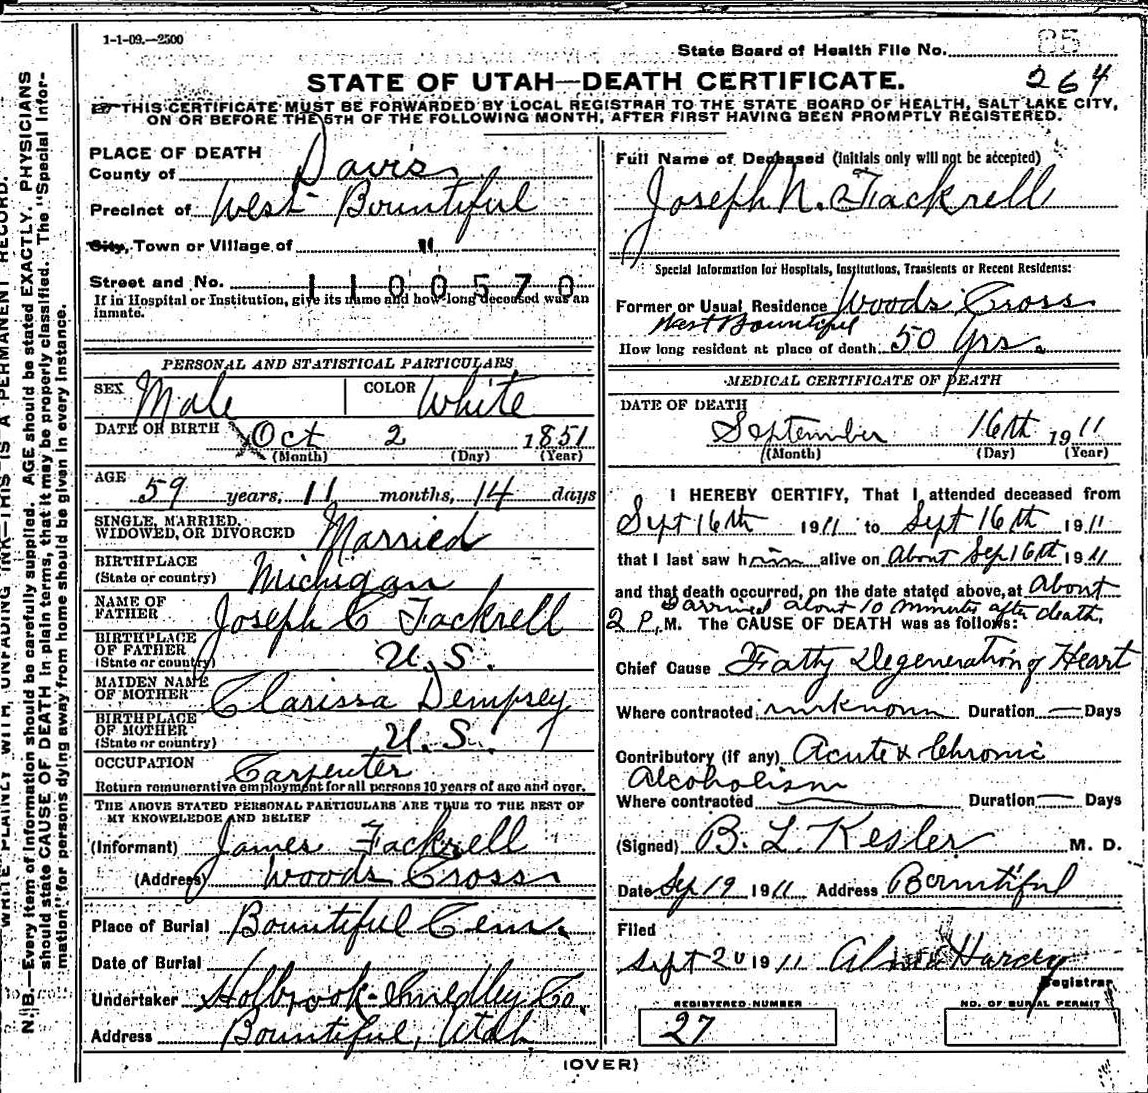 1-1-09.—2500
State Board of Health File No. 85
264
STATE OF UTAH—DEATH CERTIFICATE.
THIS CERTIFICATE MUST BE FORWARDED BY LOCAL REGISTRAR TO THE STATE BOARD OF HEALTH, SALT LAKE CITY,
ON OR BEFORE THE 5TH OF THE FOLLOWING MONTH, AFTER FIRST HAVING BEEN PROMPTLY REGISTERED.
PLACE OF DEATH
County of Davis
Precinct of West Bountiful
City, Town or Village of "
Street and No. 1100570
If in Hospital or Institution, give its name and how long deceased was an
inmate.
PERSONAL AND STATISTICAL PARTICULARS
SEX Male COLOR White
DATE OF BIRTH Oct 2 1851
(Month) (Day) (Year)
AGE 59 years, 11 months, 14 days
SINGLE, MARRIED,
WIDOWED, OR DIVORCED Married
BIRTHPLACE
(State or country) Michigan
NAME OF
FATHER Joseph C Fackrell
BIRTHPLACE
OF FATHER
(State or country) U.S.
MAIDEN NAME
OF MOTHER Clarissa Dempsey
BIRTHPLACE
OF MOTHER
(State or country) U.S.
OCCUPATION Carpenter
Return remunerative employment for all persons 10 years of age and over.
THE ABOVE STATED PERSONAL PARTICULARS ARE TRUE TO THE BEST OF
MY KNOWLEDGE AND BELIEF
(Informant) James Fackrell
(Address) Woods Cross
Place of Burial Bountiful Cem.
Date of Burial
Undertaker Holbrook-Smedley Co.
Address Bountiful, Utah
Full Name of Deceased (Initials only will not be accepted)
Joseph N. Fackrell
Special Information for Hospitals, Institutions, Transients or Recent Residents:
Former or Usual Residence Woods Cross
West Bountiful
How long resident at place of death 50 Yrs.
MEDICAL CERTIFICATE OF DEATH
DATE OF DEATH
September 16th 1911
(Month) (Day) (Year)
I HEREBY CERTIFY, That I attended deceased from
Sept 16th 1911 to Sept 16th 1911
that I last saw him alive on About Sep 16th 1911
and that death occurred, on the date stated above, at About
I arrived about 10 minutes after death.
2 P. M. The CAUSE OF DEATH was as follows:
Chief Cause Fatty Degeneration of Heart
Where contracted unknown Duration — Days
Contributory (if any) Acute & Chronic
Alcoholism
Where contracted — Duration — Days
(Signed) B. L. Kesler M. D.
Date Sep 19 1911 Address Bountiful
Filed
Sept 20 1911 Hardy
Registrar
REGISTERED NUMBER
27
NO. OF BURIAL PERMIT
(OVER)
WRITE PLAINLY WITH UNFADING INK—THIS IS A PERMANENT RECORD.
N. B.—Every item of information should be carefully supplied. AGE should be stated EXACTLY. PHYSICIANS
should state CAUSE OF DEATH in plain terms, that it may be properly classified. The "Special Infor-
mation" for persons dying away from home should be given in every instance.